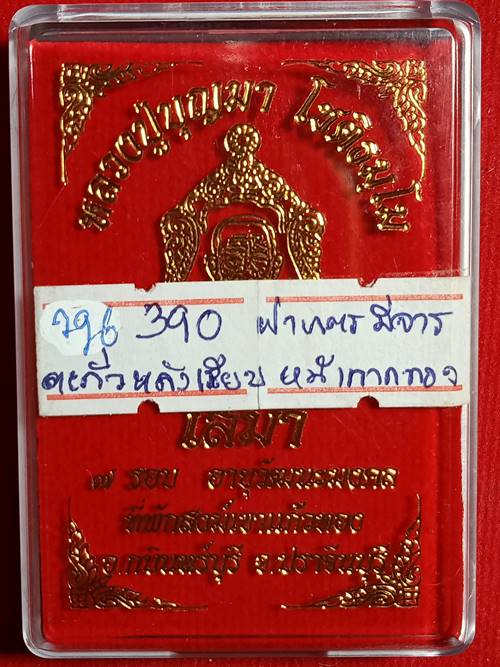 หลวงปู่บุญมา โชติธมฺโม
796 390 ฝาบาตร มีจาร
ตะกั่วหลังเรียบ หน้ากากทอง
เสมา
๗ รอบ อายุวัฒนะมงคล
ที่พักสงฆ์เขาแก้วทอง
อ.กบินทร์บุรี จ.ปราจีนบุรี